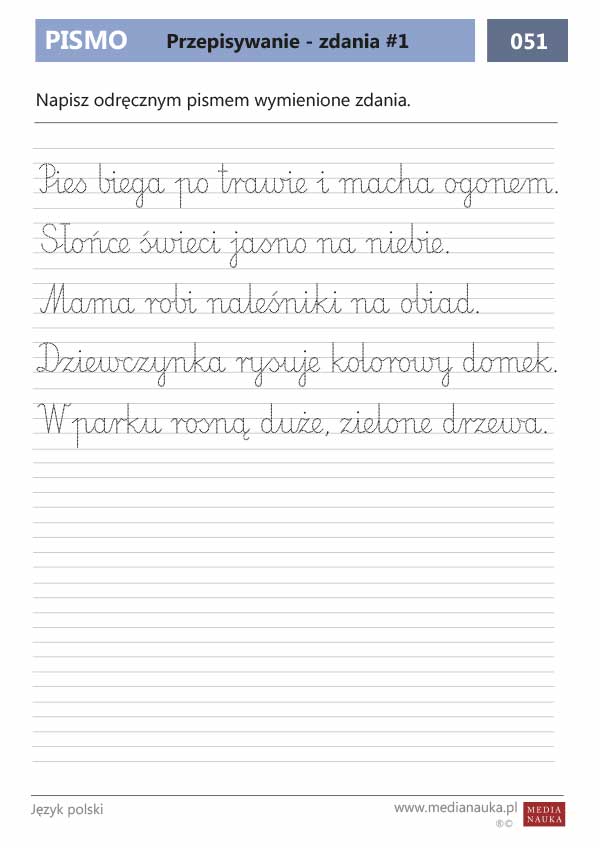 PISMO Przepisywanie - zdania #1 051
Napisz odręcznym pismem wymienione zdania.
Pies biega po trawie i macha ogonem.
Słońce świeci jasno na niebie.
Mama robi naleśniki na obiad.
Dziewczynka rysuje kolorowy domek.
W parku rosną duże, zielone drzewa.
Język polski www.medianauka.pl MEDIA
®© NAUKA